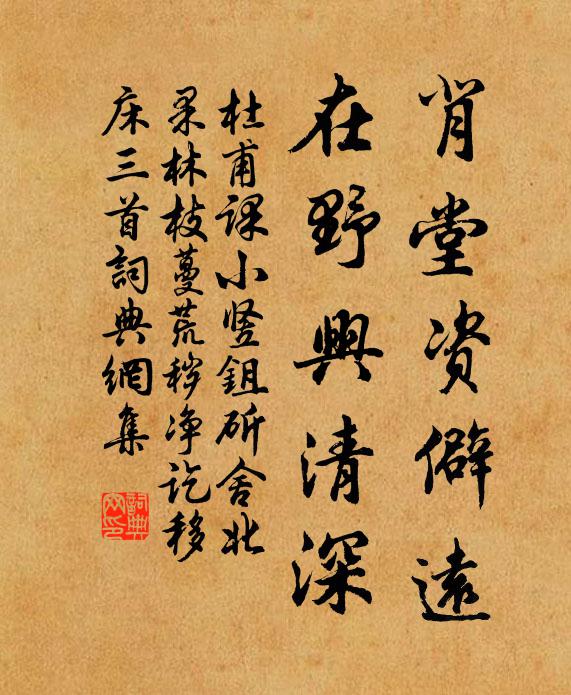 背堂资僻遠
在野興清深
杜甫課小竖鉏斫舍北
果林枝蔓荒穢净讫移
床三首詞典網集
詞典网印